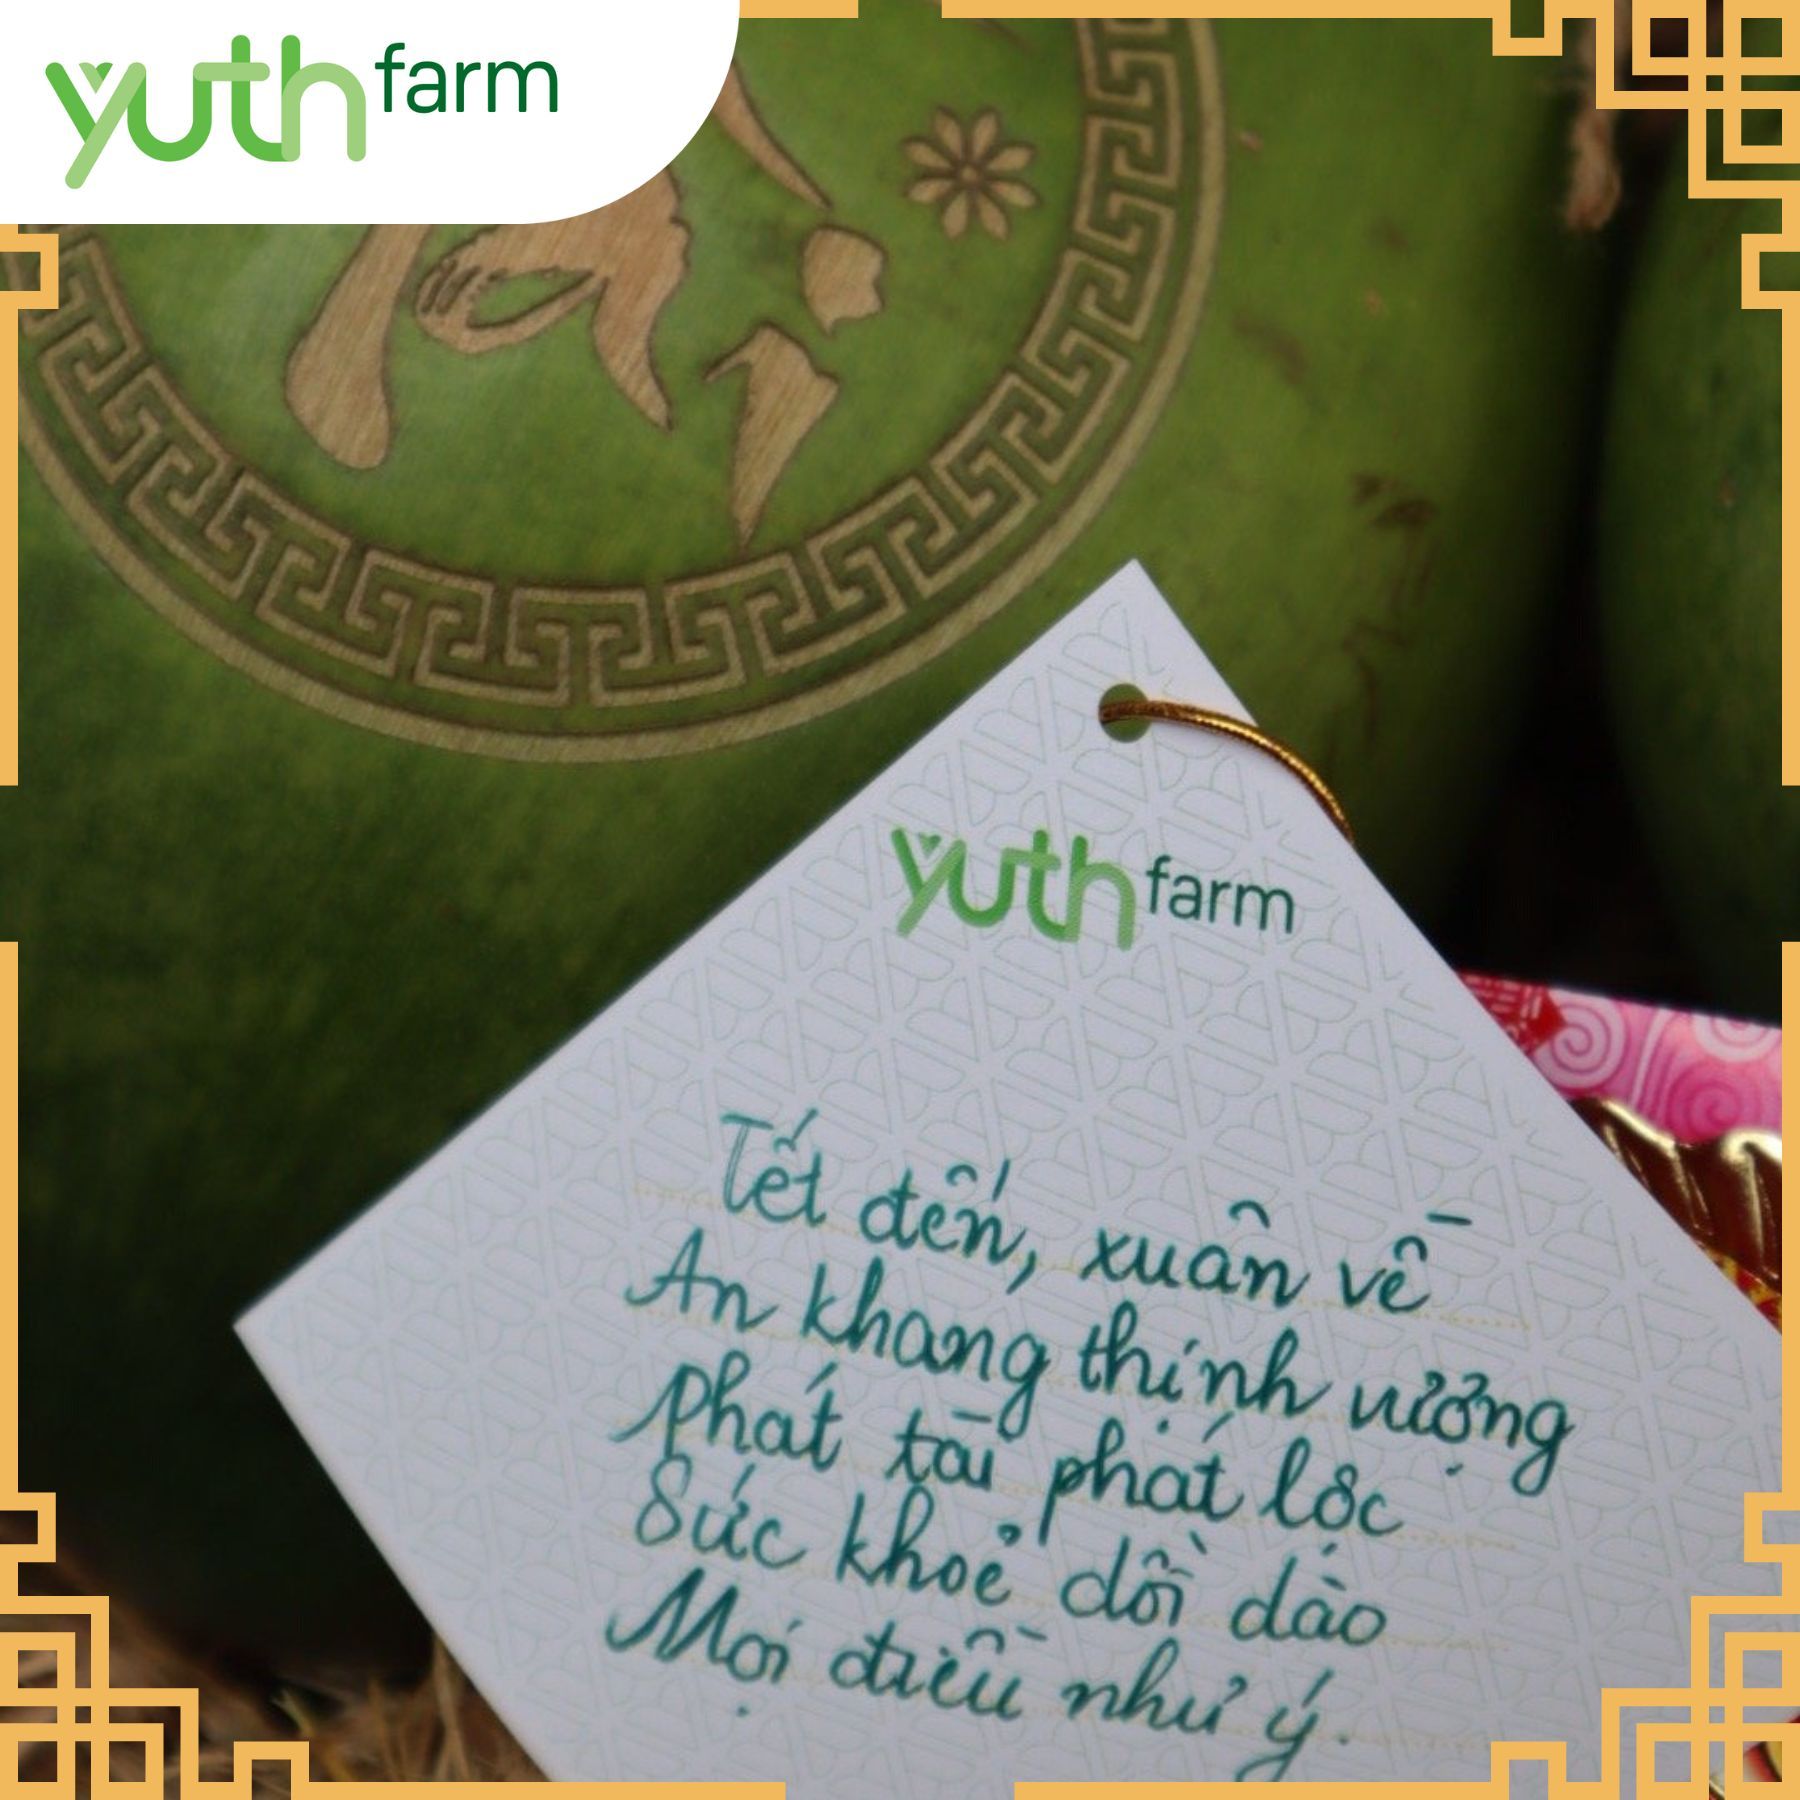 yuth farm
yuth farm
Tết đến, xuân về
An khang thịnh vượng
phát tài phát lộc
Sức khoẻ dồi dào
Mọi điều như ý.